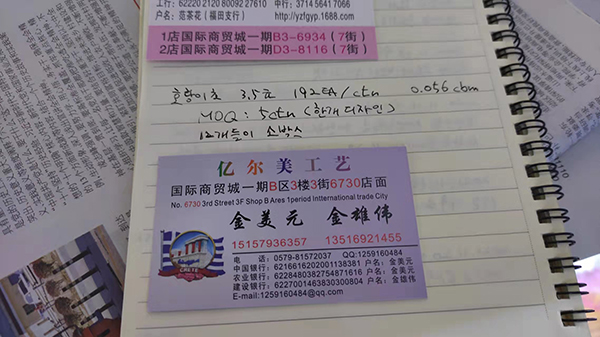 工行: 62220 2120 80092 27610
中行: 3714 5641 7066
户名: 范茶花 (福田支行)
http://yzfgyp.1688.com
1店国际商贸城一期B3-6934 (7街)
2店国际商贸城一期D3-8116 (7街)
호랑이초 3.5元 192EA/ctn 0.056 cbm
MOQ: 5ctn (한개 디자인)
12개들이 소박스
亿尔美工艺
国际商贸城一期B区3楼3街6730店面
No. 6730 3rd Street 3F Shop B Ares 1period Intternational trade City
金美元 金雄伟
15157936357 13516921455
CRETE
电 话: 0579-81572037 QQ:1259160484@
中国银行: 6216616202001138381 户名: 金美元
农业银行: 6228480382754871616 户名: 金美元
建设银行: 6227001463830300804 户名: 金雄伟
E-mail:1259160484@qq.com